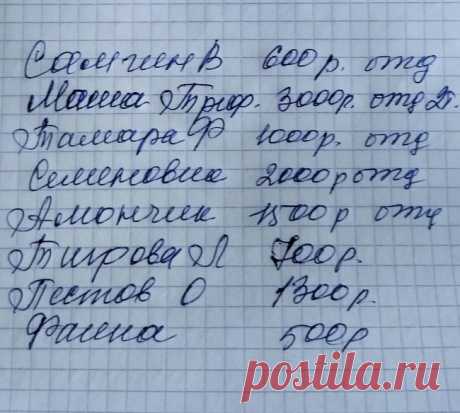 Самгин В 600 р. отд
Маша Триф. 3000р. отд 2т.
Тамара Ф 1000р. отд
Семеновна 2000 р отд
Амончик 1500 р отд
Тигрова Л 700р.
Пестов О 1300р.
Фаина 500р
postila.ru